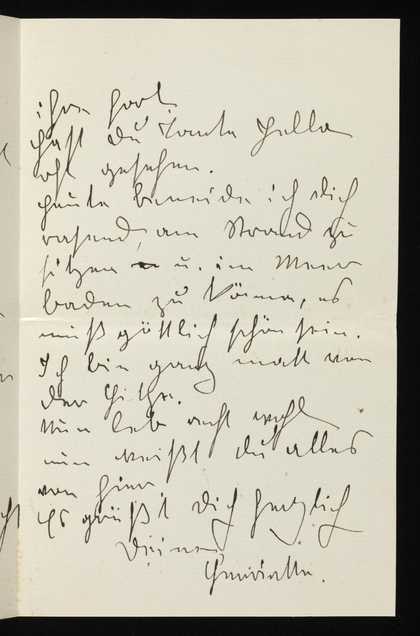 ihr fort
hast du Tante Hella
oft gesehen.
heute beneide ich Dich
rasend, am Strand zu
sitzen u. im Meer
baden zu können, es
muß göttlich schön sein.
Ich bin ganz matt von
der Hitze.
Nun leb recht wohl
nun weißt du alles
von hier
Es grüßt Dich herzlich
Deine
Henriette.